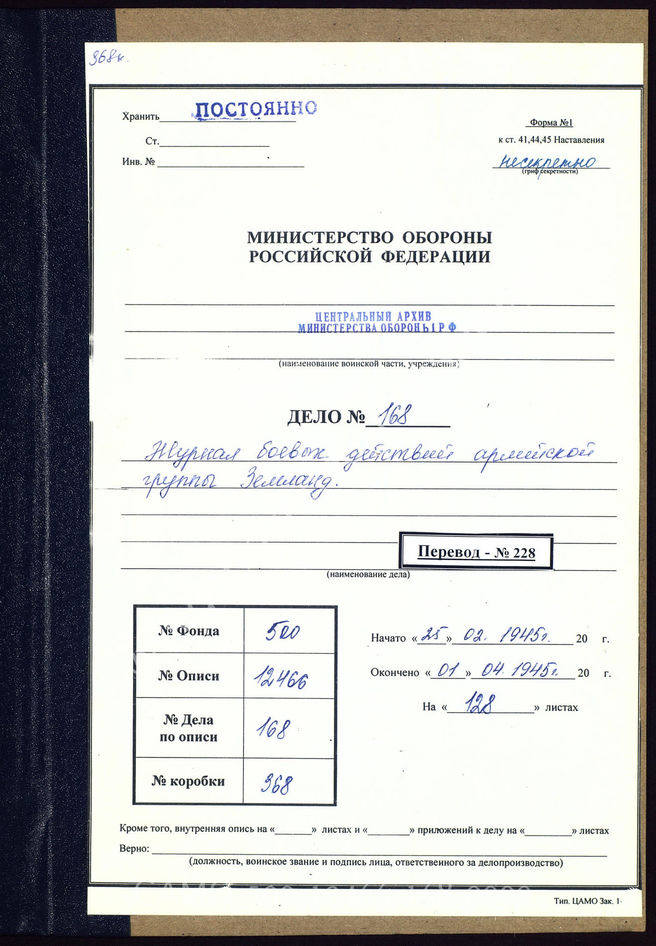 968к.
Хранить ПОСТОЯННО
Форма №1
Ст.
к ст. 41,44,45 Наставления
Инв. №
несекретно
(гриф секретности)
МИНИСТЕРСТВО ОБОРОНЫ
РОССИЙСКОЙ ФЕДЕРАЦИИ
ЦЕНТРАЛЬНЫЙ АРХИВ
МИНИСТЕРСТВА ОБОРОНЫ РФ
(наименование воинской части, учреждения)
ДЕЛО № 168
Журнал боевых действий армейской
группы Земланд.
Перевод - № 228
(наименование дела)
№ Фонда 500
№ Описи 12466
№ Дела
по описи 168
№ коробки 968
Начато «25» 02. 1945г. 20 г.
Окончено «01» 04. 1945г. 20 г.
На «128» листах
Кроме того, внутренняя опись на «    » листах и «    » приложений к делу на «    » листах
Верно:
(должность, воинское звание и подпись лица, ответственного за делопроизводство)
Тип. ЦАМО Зак. 1-